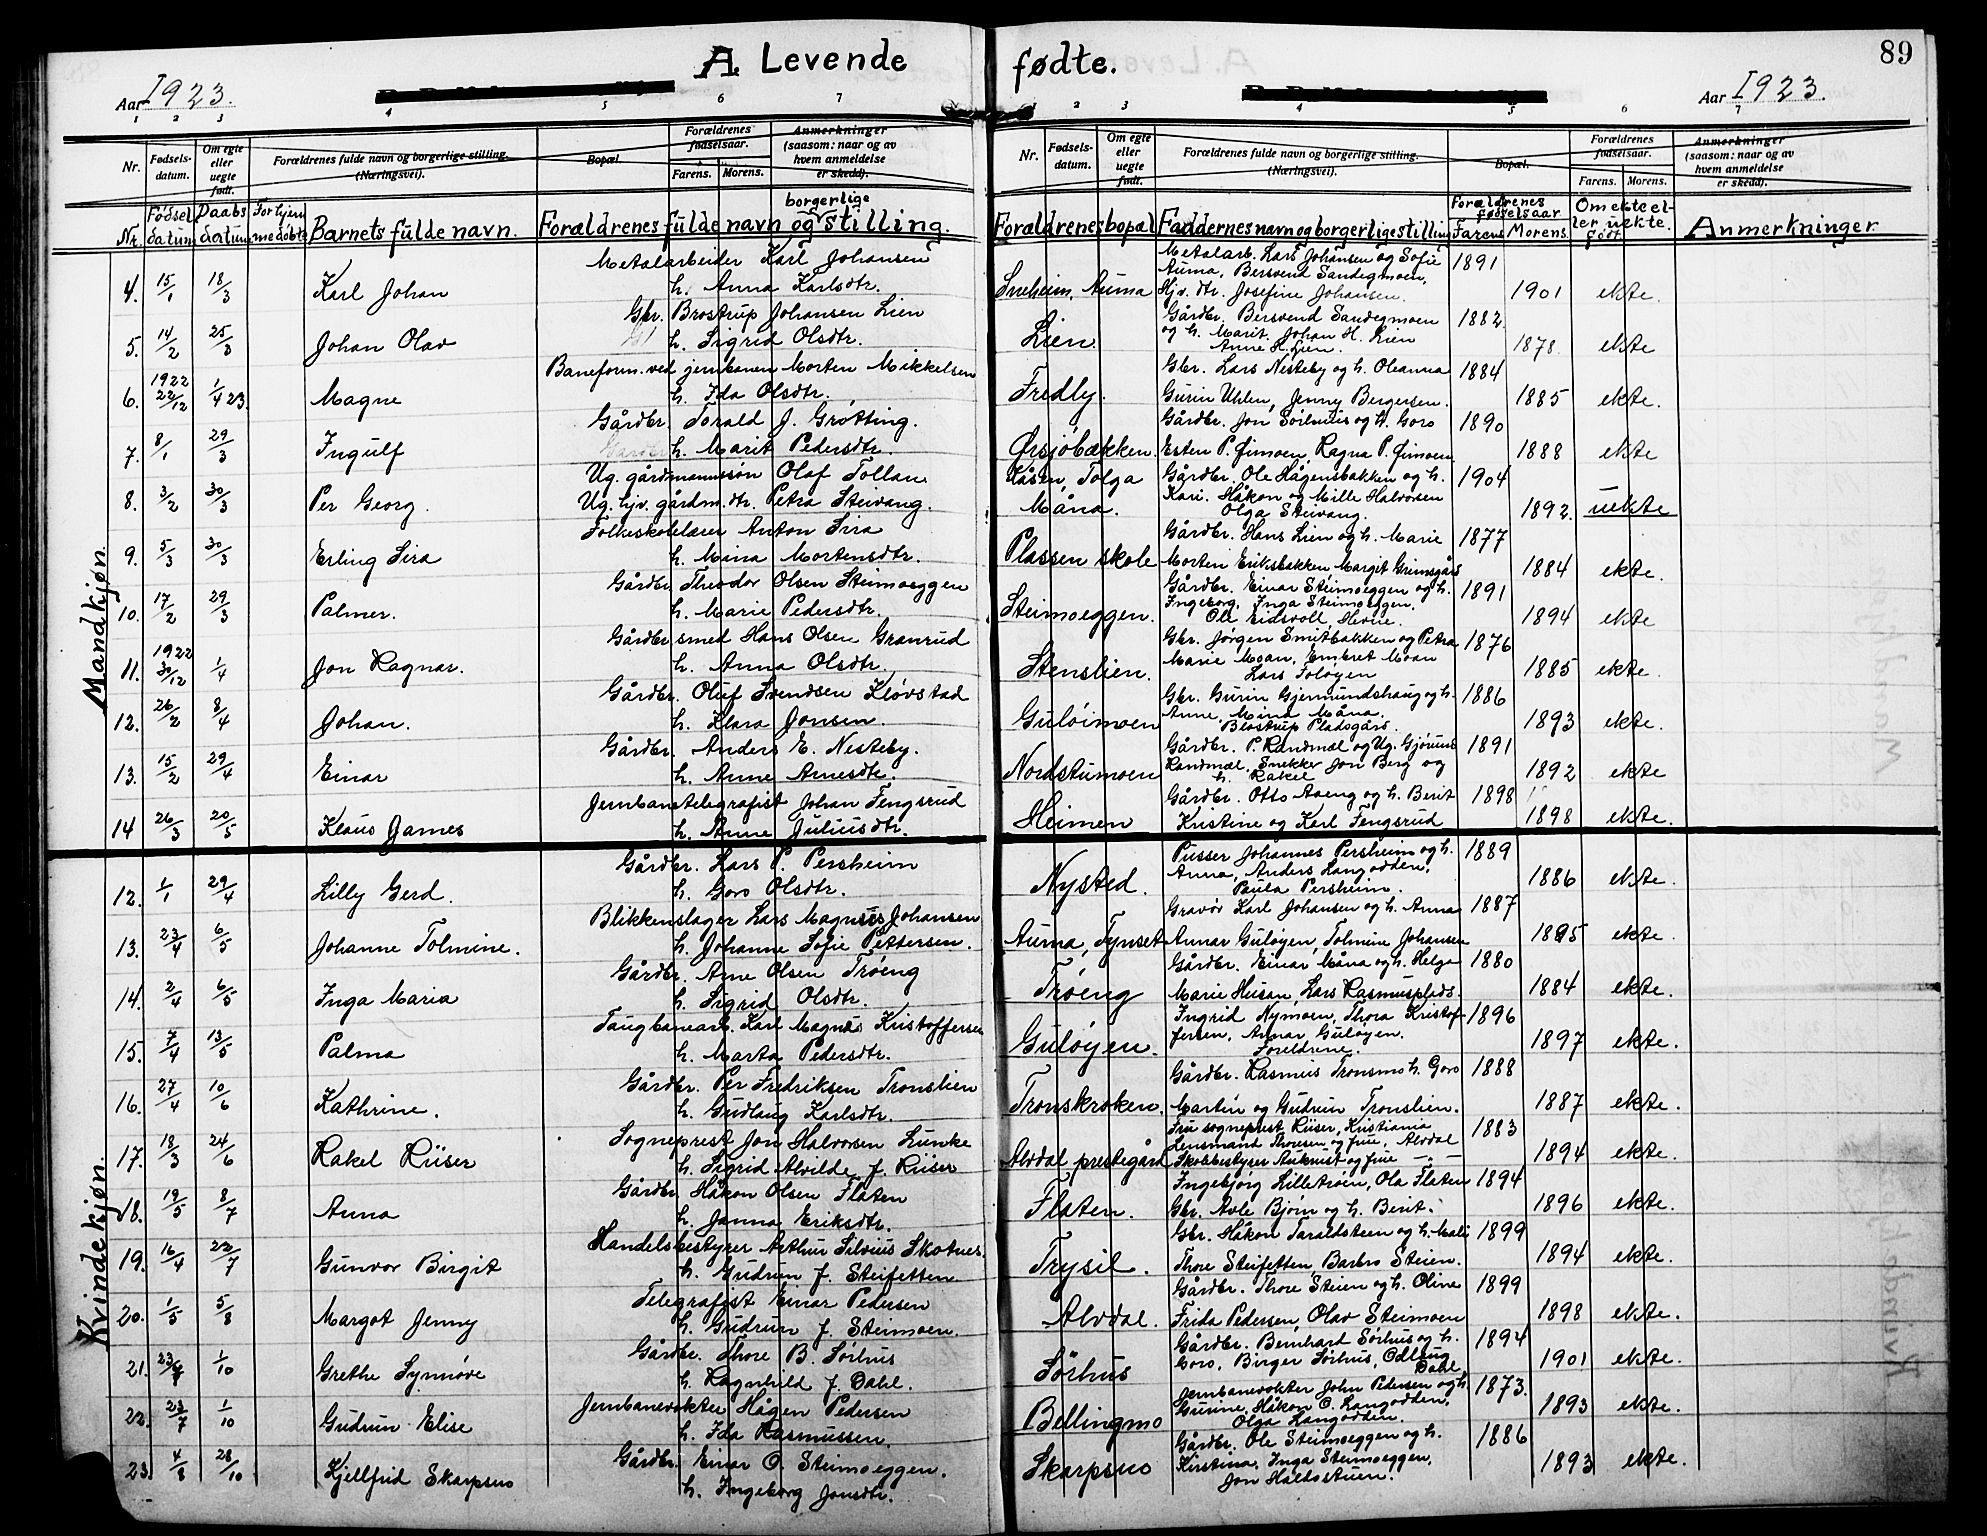 A. Levende fødte. 89
Aar 1923. Aar 1923.
1 2 3 4 5 6 7 1 2 3 4 5 6 7
Nr. Fødsels-datum. Om egte eller uegte født. Forældrenes fulde navn og borgerlige stilling. (Næringsvei). Bopæl. Forældrenes fødselsaar. Farens. Morens. Anmerkninger (saasom: naar og av hvem anmeldelse er skedd).
Nr. Fødsels-datum. Om egte eller uegte født. Forældrenes fulde navn og borgerlige stilling. (Næringsvei). Bopæl. Forældrenes fødselsaar. Farens. Morens. Anmerkninger (saasom: naar og av hvem anmeldelse er skedd).
Nr. Fødsel datum Daabs datum For hjem medøbte Barnets fulde navn. Forældrenes fulde navn og borgerlige stilling. Forældrenes bopæl Faddernes navn og borgerlige stilling Forældrenes fødselsaar Farens Morens. Om ekte eller uekte født Anmerkninger
Mandkjøn.
Metalarbeider Karl Johansen Metalarb. Lars Johansen og Sofie 1891
4. 15/1 18/3 Karl Johan h. Anna Karlsdtr. Sneheim, Auma Auma, Bersvend Sandegmoen, Hjv. dtr. Josefine Johansen. 1901 ekte.
Gbr. Brostrup Johansen Lien Gårdbr. Bersvend Sandegmoen 1882
5. 14/2 25/3 Johan Olav h. Sigrid Olsdtr. Lien og h. Marit. Johan H. Lien Anne H. Lien. 1878. ekte
Baneform. ved jernbanen Morten Mikkelsen Gbr. Lars Nesteby og h. Oleanna 1884
6. 1922 22/12 1/4 23. Magne h. Ida Olsdtr. Fredly. Gurin Uhlen, Jenny Bergersen. 1885 ekte.
Gårdbr. Torald J. Grøtting. Gårdbr. Jon Sörhuus og h. Goro 1890
7. 8/1 29/3 Ingulf h. Marit Pedersdtr. Ørsjøbækken. Esten P. Øimoen, Ragna P. Øimoen. 1888 ekte
Ug. gårdmannssøn Olaf Tollan Låsen, Tolga Gårdbr. Ole Hågensbakken og h. 1904
8. 3/2 30/3 Per Georg. Ug. hjv. gårdm. dtr. Petra Steivang. Måna. Kari. Håkon og Mille Halvorsen Olga Steivang. 1892. uekte
Folkeskolelærer Anton Sira Gårdbr. Hans Lien og h. Marie 1877
9. 5/3 30/3 Erling Sira h. Mina Mortensdtr. Plassen skole Morten Eriksbakken Margit Grimsgård 1884 ekte.
Gårdbr. Theodor Olsen Steimoeggen Gårdbr. Einar Steimoeggen og h. 1891
10. 17/2 29/3 Palmer. h. Marie Pedersdtr. Steimoeggen. Ingeborg, Inga Steimoeggen. Ole Eidsvoll, Hevne. 1894 ekte
Gårdbr smed Hans Olsen Granrud Gbr. Jørgen Smitbakken og Petra 1876
11. 1922 30/12 1/4 Jon Ragnar. h. Anna Olsdtr. Stenslien. Marie Moan, Embret Moan Lars Foløyen 1885 ekte.
Gårdbr. Oluf Svendsen Kløvstad Gbr. Gurin Gjermundshaug og h. 1886
12. 26/2 8/4 Johan. h. Klara Jonsen. Guløimoen Anne, Mina Måna. Blostrup Pladsgård. 1893 ekte.
Gårdbr. Anders E. Nesteby. Gårdbr. P. Randmæl og Ug. 1891
13. 15/2 29/4 Einar h. Anne Arnesdtr. Nordstumoen Randmæl, Snekker Jon Berg og h. Rakel 1892 ekte
Jernbanetelegrafist Johan Fengsrud Gårdbr. Otto Aaeng og h. Berit 1898
14 26/3 20/5 Klaus James h. Anne Juliusdtr. Heimen Kristine og Karl Fengsrud 1898 ekte.
Kvindekjøn.
Gårdbr. Lars P. Persheim Pusser Johannes Persheim og h. 1889
12. 1/1 29/4 Lilly Gerd. h. Goro Olsdtr. Nysted. Anna, Anders Langodden, Paula Persheim. 1886 ekte.
Blikkenslager Lars Magnus Johansen Gravør Karl Johansen og h. Anna 1887
13. 23/4 6/5 Johanne Tolmine. h. Johanne Sofie Pettersen. Auma, Tynset Annar Guløyen, Tolmine Johansen 1895 ekte.
Gårdbr. Arne Olsen Trøeng Gårdbr. Einar Måna og h. Helga 1880
14. 2/4 6/5 Inga Maria h. Sigrid Olsdtr. Trøeng Marie Husan, Lars Rasmusplads. 1884 ekte.
Taugbanearb. Karl Magnus Kristoffersen Ingrid Nymoen, Thora Kristof- 1896
15. 7/4 13/5 Palma h. Marta Pedersdtr. Guløyen. fersen, Annar Guløyen. Foreldrene. 1897 ekte.
Gårdbr. Per Fredriksen Tronslien Gårdbr. Rasmus Tronsmo h. Goro 1888
16. 27/4 10/6 Kathrine. h. Gudlaug Karlsdtr. Tronskroken. Martin og Gudrun Tronslien. 1887 ekte.
Sogneprest Jon Halvorsen Lunke Fru sogneprest Riiser, Kristiania 1883
17. 18/3 24/6 Rakel Riiser h. Sigrid Alvilde f. Riiser Alvdal prestegård Lensmand Thoresen og frue, Alvdal Skolebestyrer Aukrust og frue — " — 1894 ekte.
Gårdbr. Håkon Olsen Flaten Ingebjørg Lilletrøen, Ola Flaten 1894
18. 19/5 8/7 Anna h. Janna Eriksdtr. Flaten. Gbr. Avle Bjørn og h. Berit. 1896 ekte.
Handelsbestyrer Arthur Silvius Skotnes. Gbr. Håkon Taraldsteen og h. Mali 1899
19. 16/4 22/7 Gunvor Birgit h. Gudrun f. Steifetten Trysil. Thore Steifetten, Barbro Steien. 1894 ekte.
Telegrafist Einar Pedersen Gårdbr. Thore Steien og h. Oline 1899
20. 1/5 5/8 Margot Jenny h. Gudrun f. Steimoen. Alvdal. Frida Pedersen, Olav Steimoen 1898 ekte.
Gårdbr. Thore B. Sörhus Gårdbr. Bernhard Sörhus og h. 1894
21. 1/10 Grethe Synnøve h. Ragnhild f. Dahl. Sörhus Goro, Birger Sörhus, Odlaug Dahl 1901 ekte.
Jernbanevokter Hågen Pedersen Jernbanevokter John Pedersen og h. 1873.
22. 23/7 1/10 Gudrun Elise h. Ida Rasmussen. Bellingmo Gurine, Håkon O. Langodden, Olga Langodden. 1893 ekte.
Gårdbr. Einar O. Steimoeggen. Gårdbr. Ole Steimoeggen og h. 1886
23. 4/8 28/10 Kjellfrid Skarpsno h. Ingeborg Jonsdtr. Skarpsno Kirstina, Inga Steimoeggen, Jon Haldostuen. 1893 ekte.